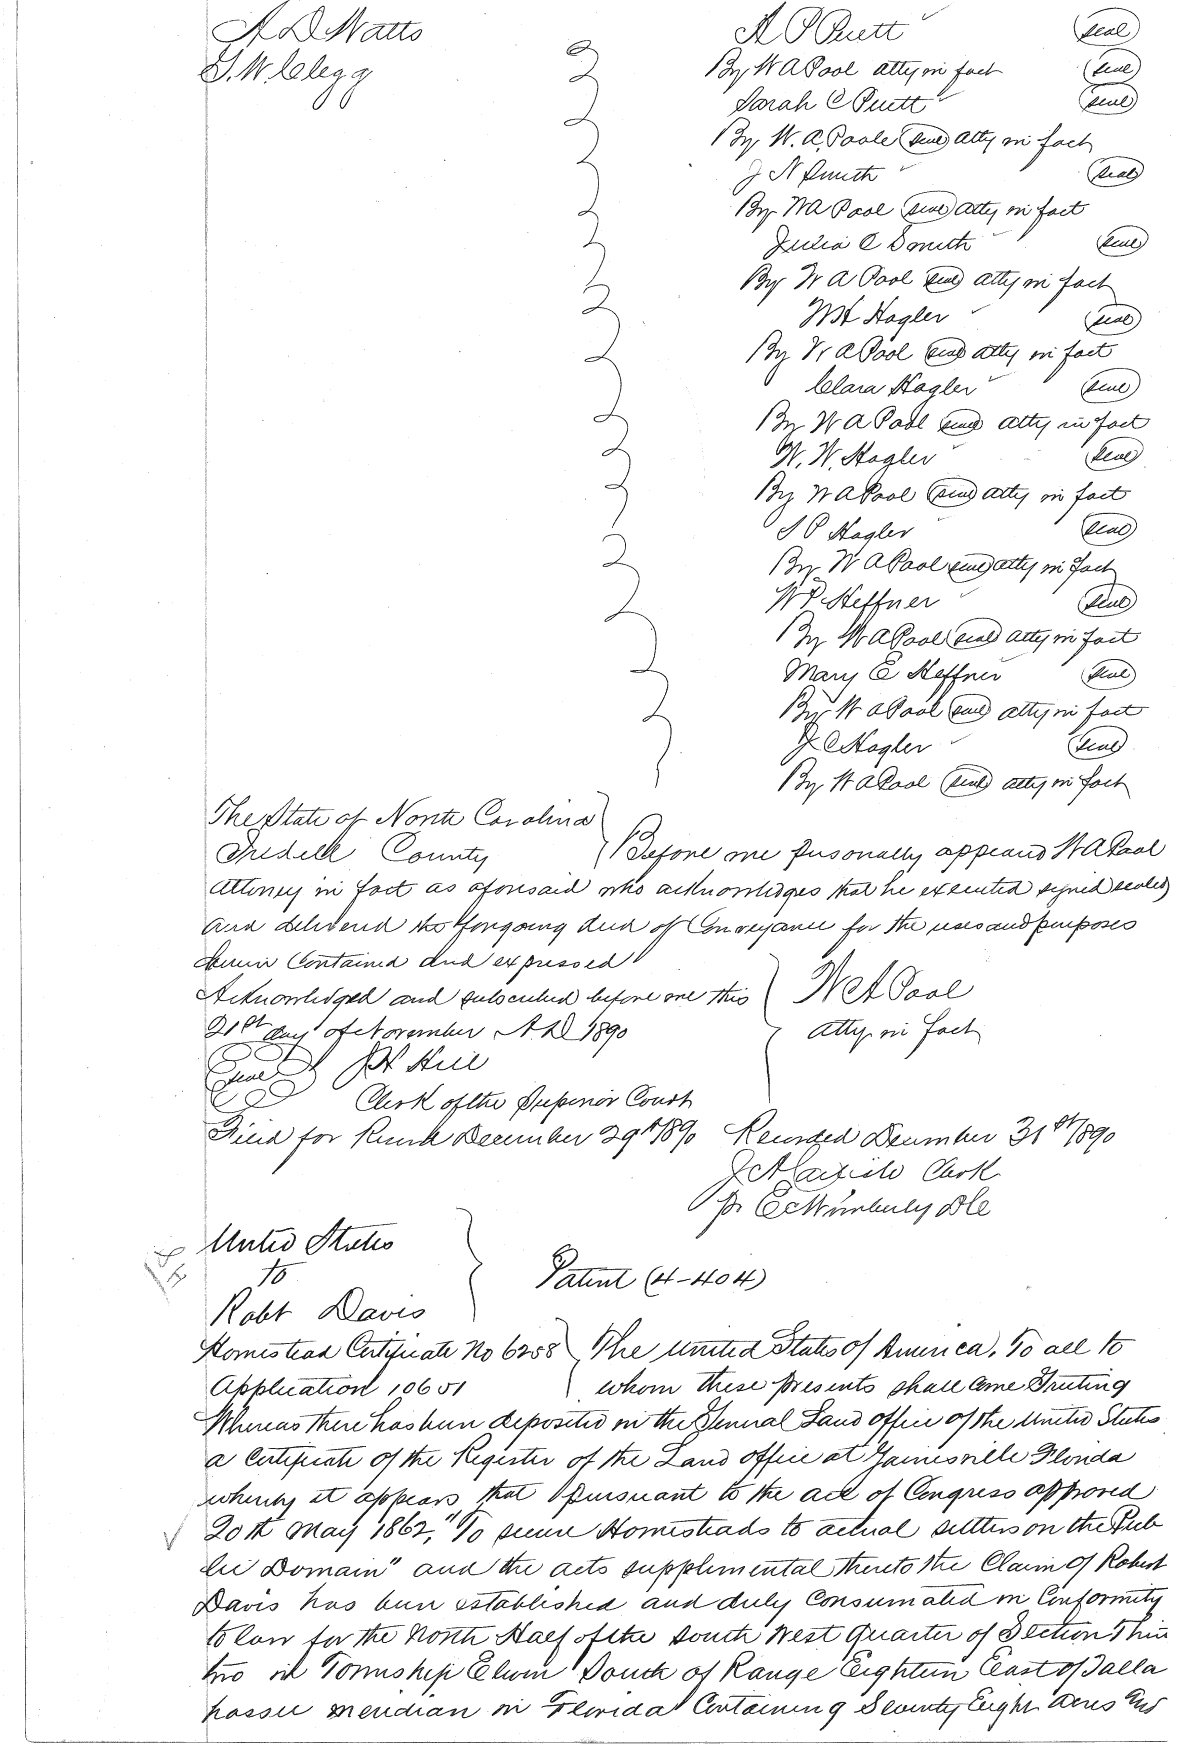 A D Watts
A P Puett (seal)
T. W. Clegg
By W A Pool atty in fact (seal)
Sarah C Puett (seal)
By W. A. Poole (seal) atty in fact
J N Smith (seal)
By W A Pool (seal) atty in fact
Julia C Smith (seal)
By W A Pool (seal) atty in fact
W H Hagler (seal)
By W A Pool (seal) atty in fact
Clara Hagler (seal)
By W A Pool (seal) atty in fact
W. W. Hagler (seal)
By W A Pool (seal) atty in fact
S P Hagler (seal)
By W A Pool (seal) atty in fact
W P Heffner (seal)
By W A Pool (seal) atty in fact
Mary E Heffner (seal)
By W A Pool (seal) atty in fact
J C Hagler (seal)
By W A Pool (seal) atty in fact
The State of North Carolina
Iredell County Before me personally appeared W A Pool
Attorney in fact as aforesaid who acknowledges that he executed signed sealed
and delivered the forgoing deed of Conveyance for the uses and purposes
therein Contained and expressed
Acknowledged and subscribed before me this W A Pool
21st day of November A. D. 1890 atty in fact
(Seal) J H Hill
Clerk of the Superior Court
Filed for Record December 29th 1890 Recorded December 31st 1890
Clerk
pr E C Wimberly DC
United States
to Patent (4-404)
Robt Davis
Homestead Certificate No 6258 The United States of America. To all to
Application 10651 whom these presents shall come Greeting
Whereas there has been deposited in the General Land office of the United States
a Certificate of the Register of the Land office at Gainesville Florida
whereby it appears that pursuant to the act of Congress approved
20th May 1862, "To secure Homesteads to actual settlers on the Pub
lic Domain" and the acts supplemental thereto the Claim of Robert
Davis has been established and duly Consumated in Conformity
to law for the North Half of the South West Quarter of Section Thir
two in Township Eleven South of Range Eighteen East of Talla
hassee meridian in Florida Containing Seventy Eight acres and